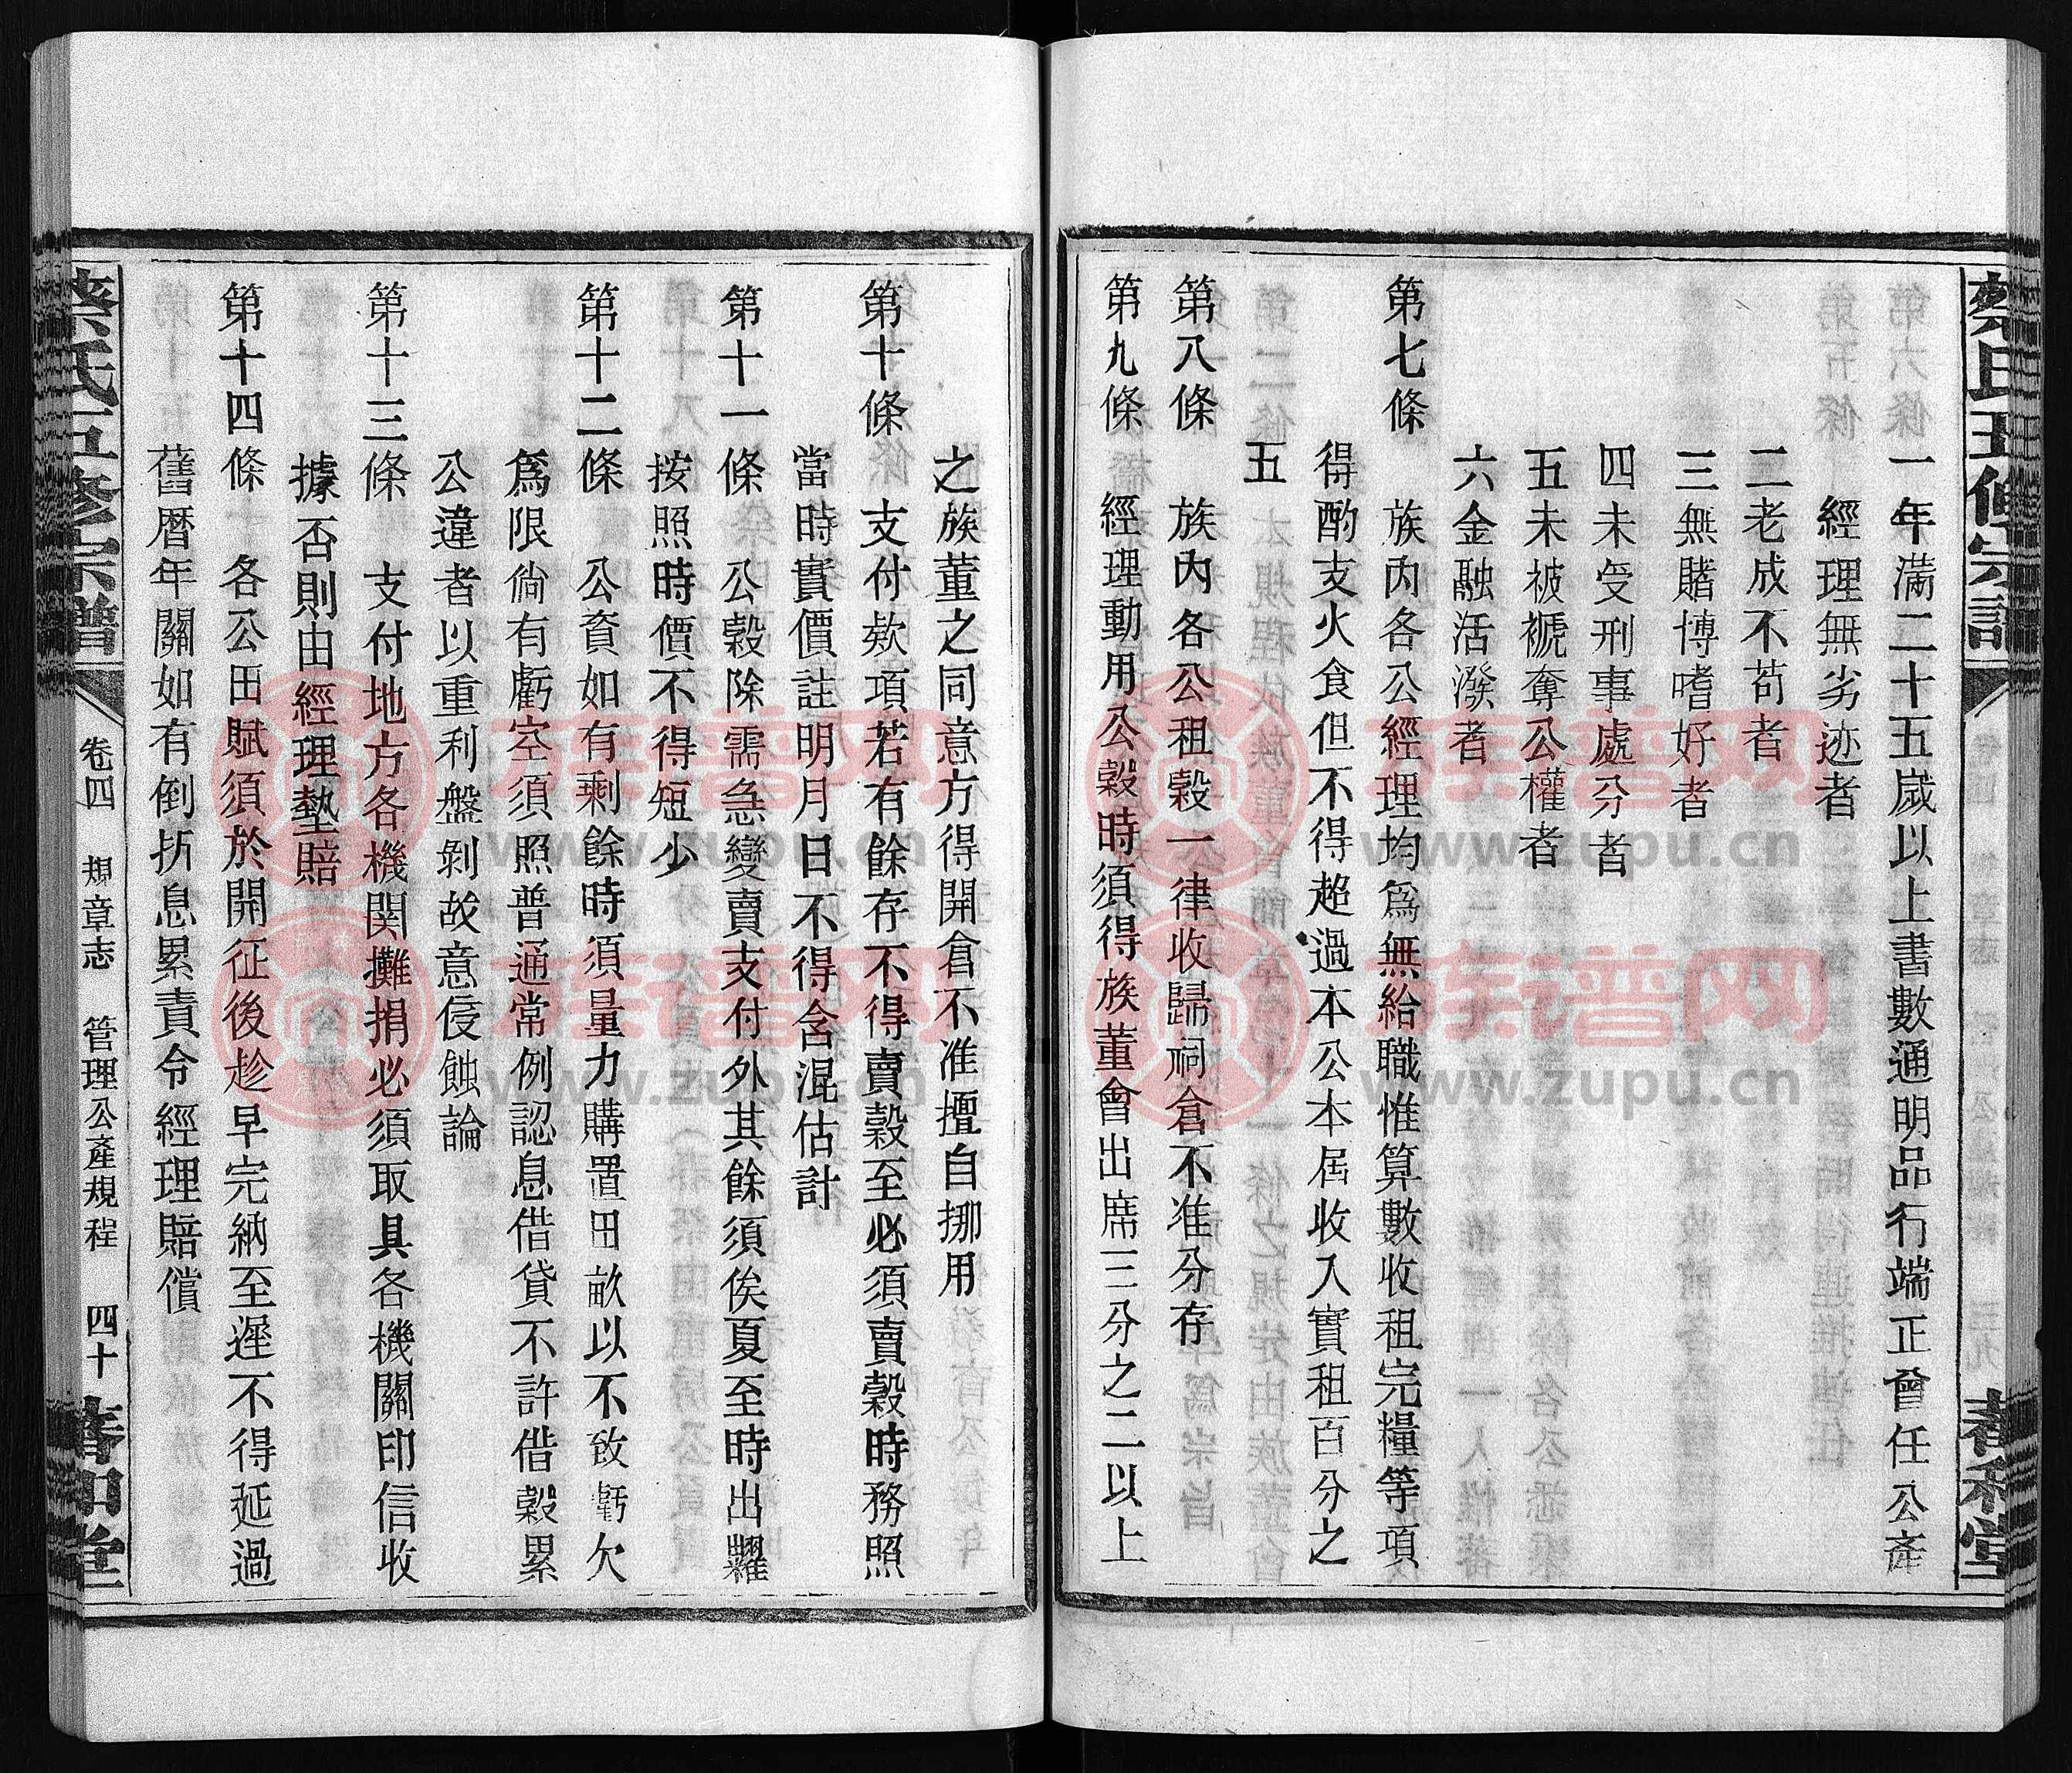 蔡氏五修宗譜
春和堂
一年滿二十五歲以上書數通明品行端正曾任公產
經理無劣迹者
二老成不苟者
三無賭博嗜好者
四未受刑事處分者
五未被褫奪公權者
六金融活潑者
第七條　族內各公經理均為無給職惟算數收租完糧等項
得酌支火食但不得超過本公本屆收入實租百分之
五
第八條　族內各公租穀一律收歸祠倉不准分存
第九條　經理動用公穀時須得族董會出席三分之二以上
之族董之同意方得開倉不准擅自挪用
第十條　支付欵項若有餘存不得賣穀至必須賣穀時務照
當時實價註明月日不得含混估計
第十一條　公穀除需急變賣支付外其餘須俟夏至時出糶
按照時價不得短少
第十二條　公資如有剩餘時須量力購置田畝以不致虧欠
為限倘有虧空須照普通常例認息借貸不許借穀累
公違者以重利盤剝故意侵蝕論
第十三條　支付地方各機関攤捐必須取具各機關印信收
據否則由經理墊賠
第十四條　各公田賦須於開征後趁早完納至遲不得延過
舊曆年關如有倒折息累責令經理賠償
蔡氏五修宗譜
卷四　規章志　管理公產規程　四十
春和堂
族谱网
www.zupu.cn
族谱网
www.zupu.cn
族谱网
www.zupu.cn
族谱网
www.zupu.cn